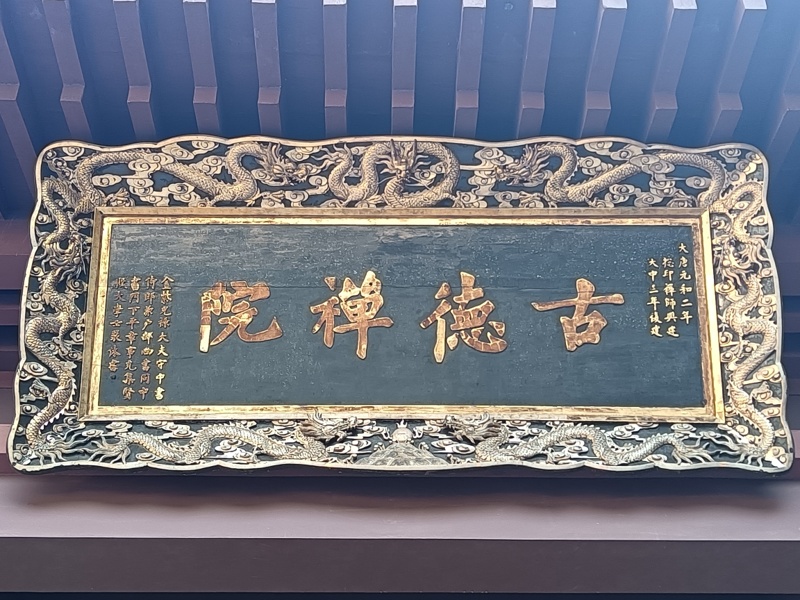 大唐元和二年
捴印禪師興建
大中三年復建
古德禅院
金紫光禄大夫守中書
侍郎兼户部尚書同中
書門下平章事充集賢
殿大學士裴休書